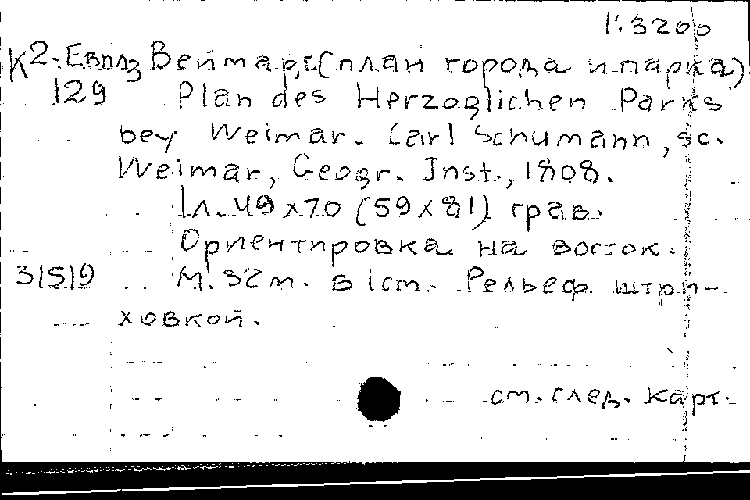 1:3200
К2-Евп13 Веймар, г. (план города и парка)
129 Plan des Herzoglichen Parks
bey Weimar. Carl Schumann, sc.
Weimar, Geogr. Inst., 1808.
1 л. 49×70 (59×81) грав.
Ориентировка на восток.
31519 М. 32 м. в 1 cm. Рельеф штри-
ховкой.
см. след. карт.